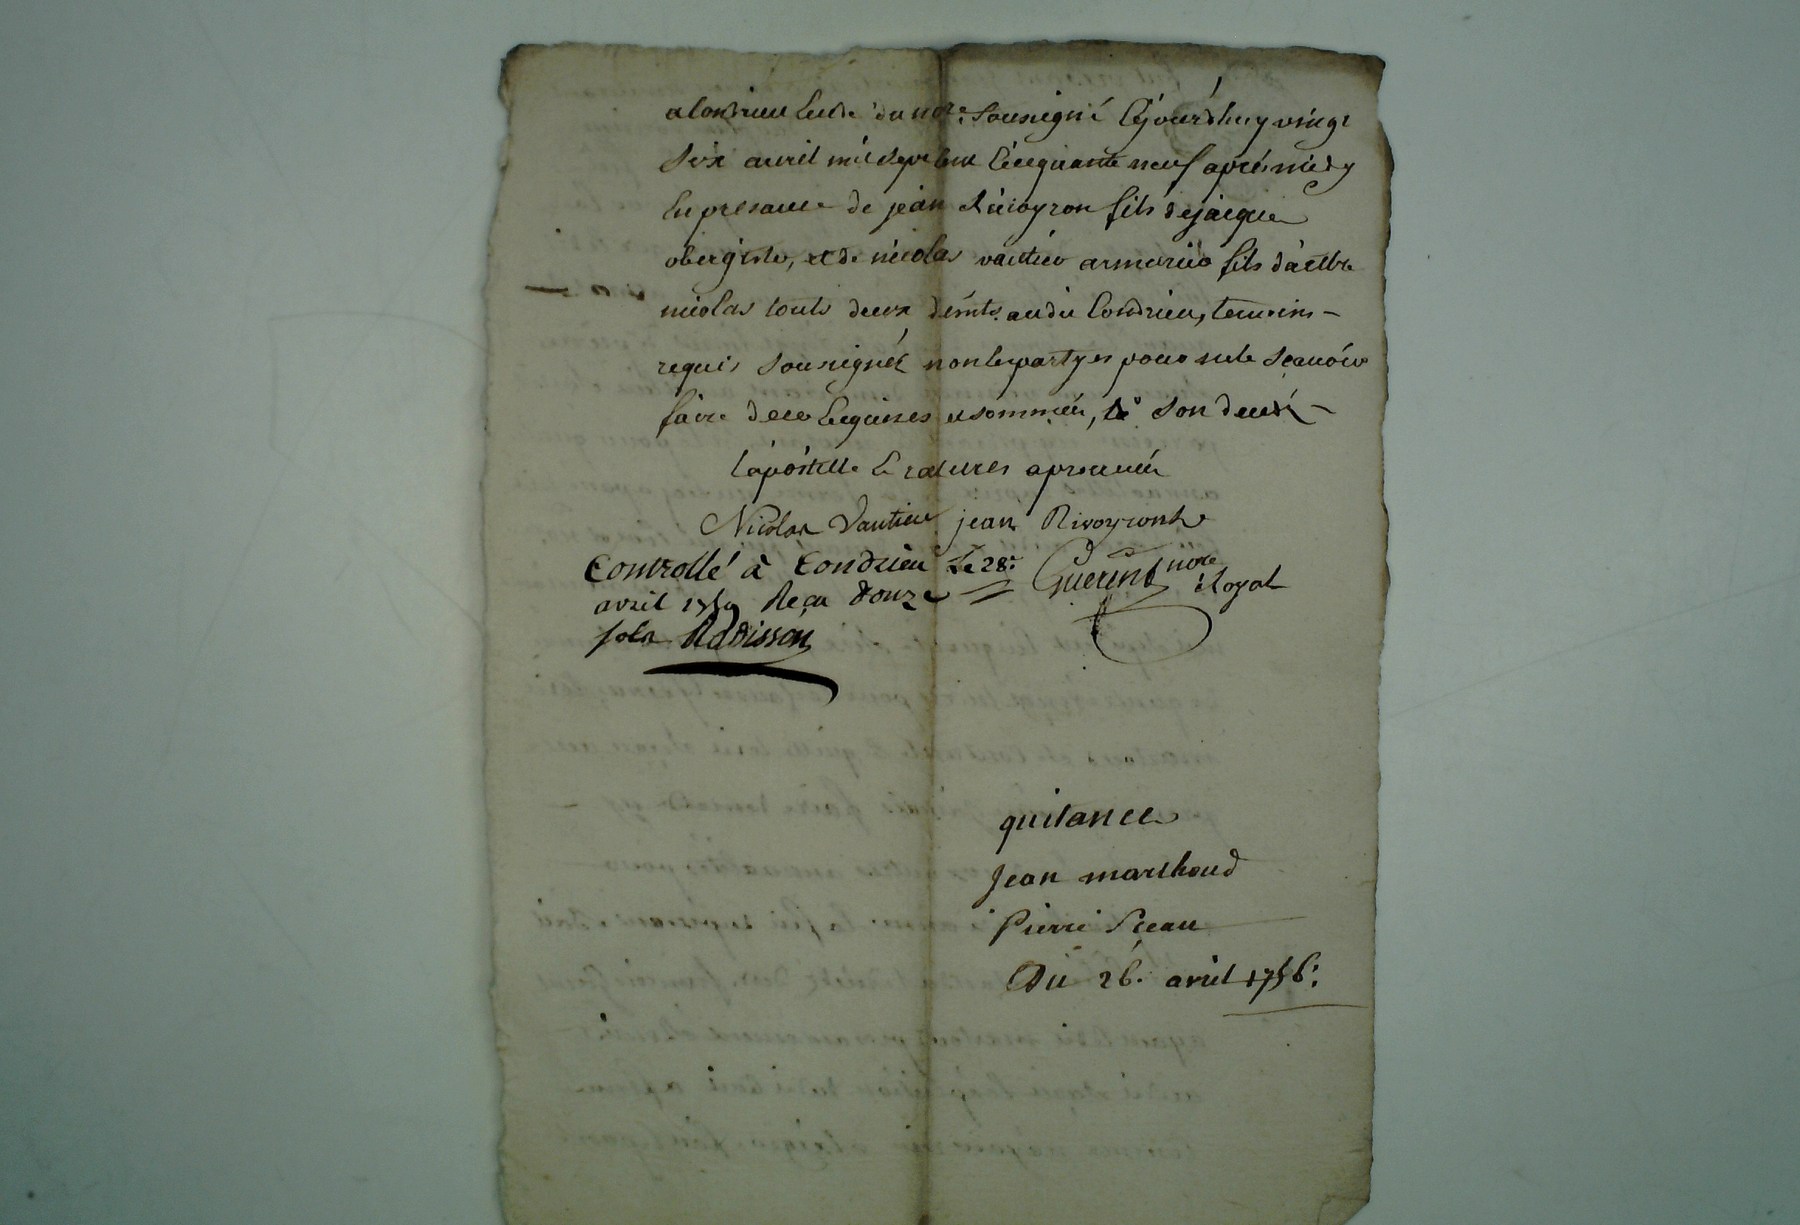 a Condrieu Etude du nore. Sousigné Cejourdhuy vingt
Six avril mil sept cent Cinquante neuf aprés midy
En presance de jean Rivoyron fils de jacque
obergiste, et de nicolas vautier armurier fils d'autre
nicolas touts deux audit Condrieu, temoins
requis Sousignés non les partyes pour ne le Scavoir
faire de ce Enquises et sommées, Son deux
L'apostille Et ratures aprouvée
Nicolas Vautier jean Rivoyront
Controllé à Condrieu Le 28e Guerin nore
avril 1759 Reçu Douze Royal
sols Radisson
quitance
Jean marthoud
Pierre
Du 26. avril 1756: